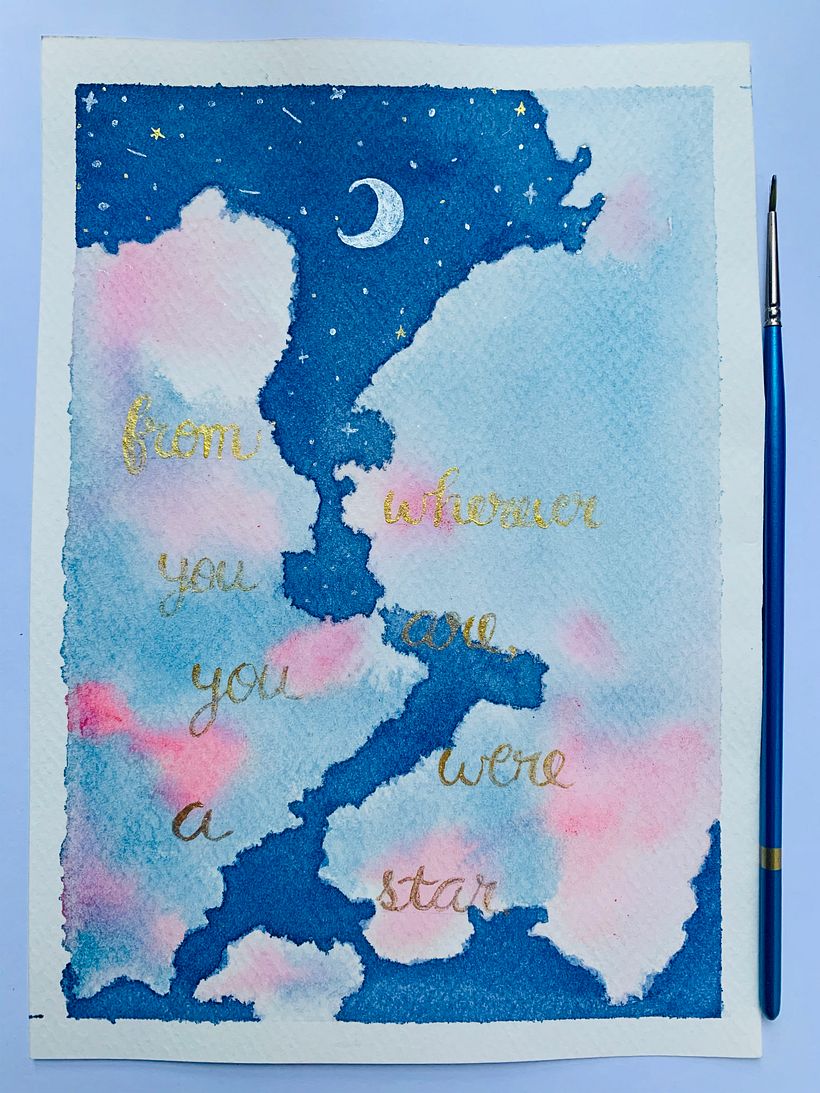 from
wherever
you
are,
you
were
a
star.